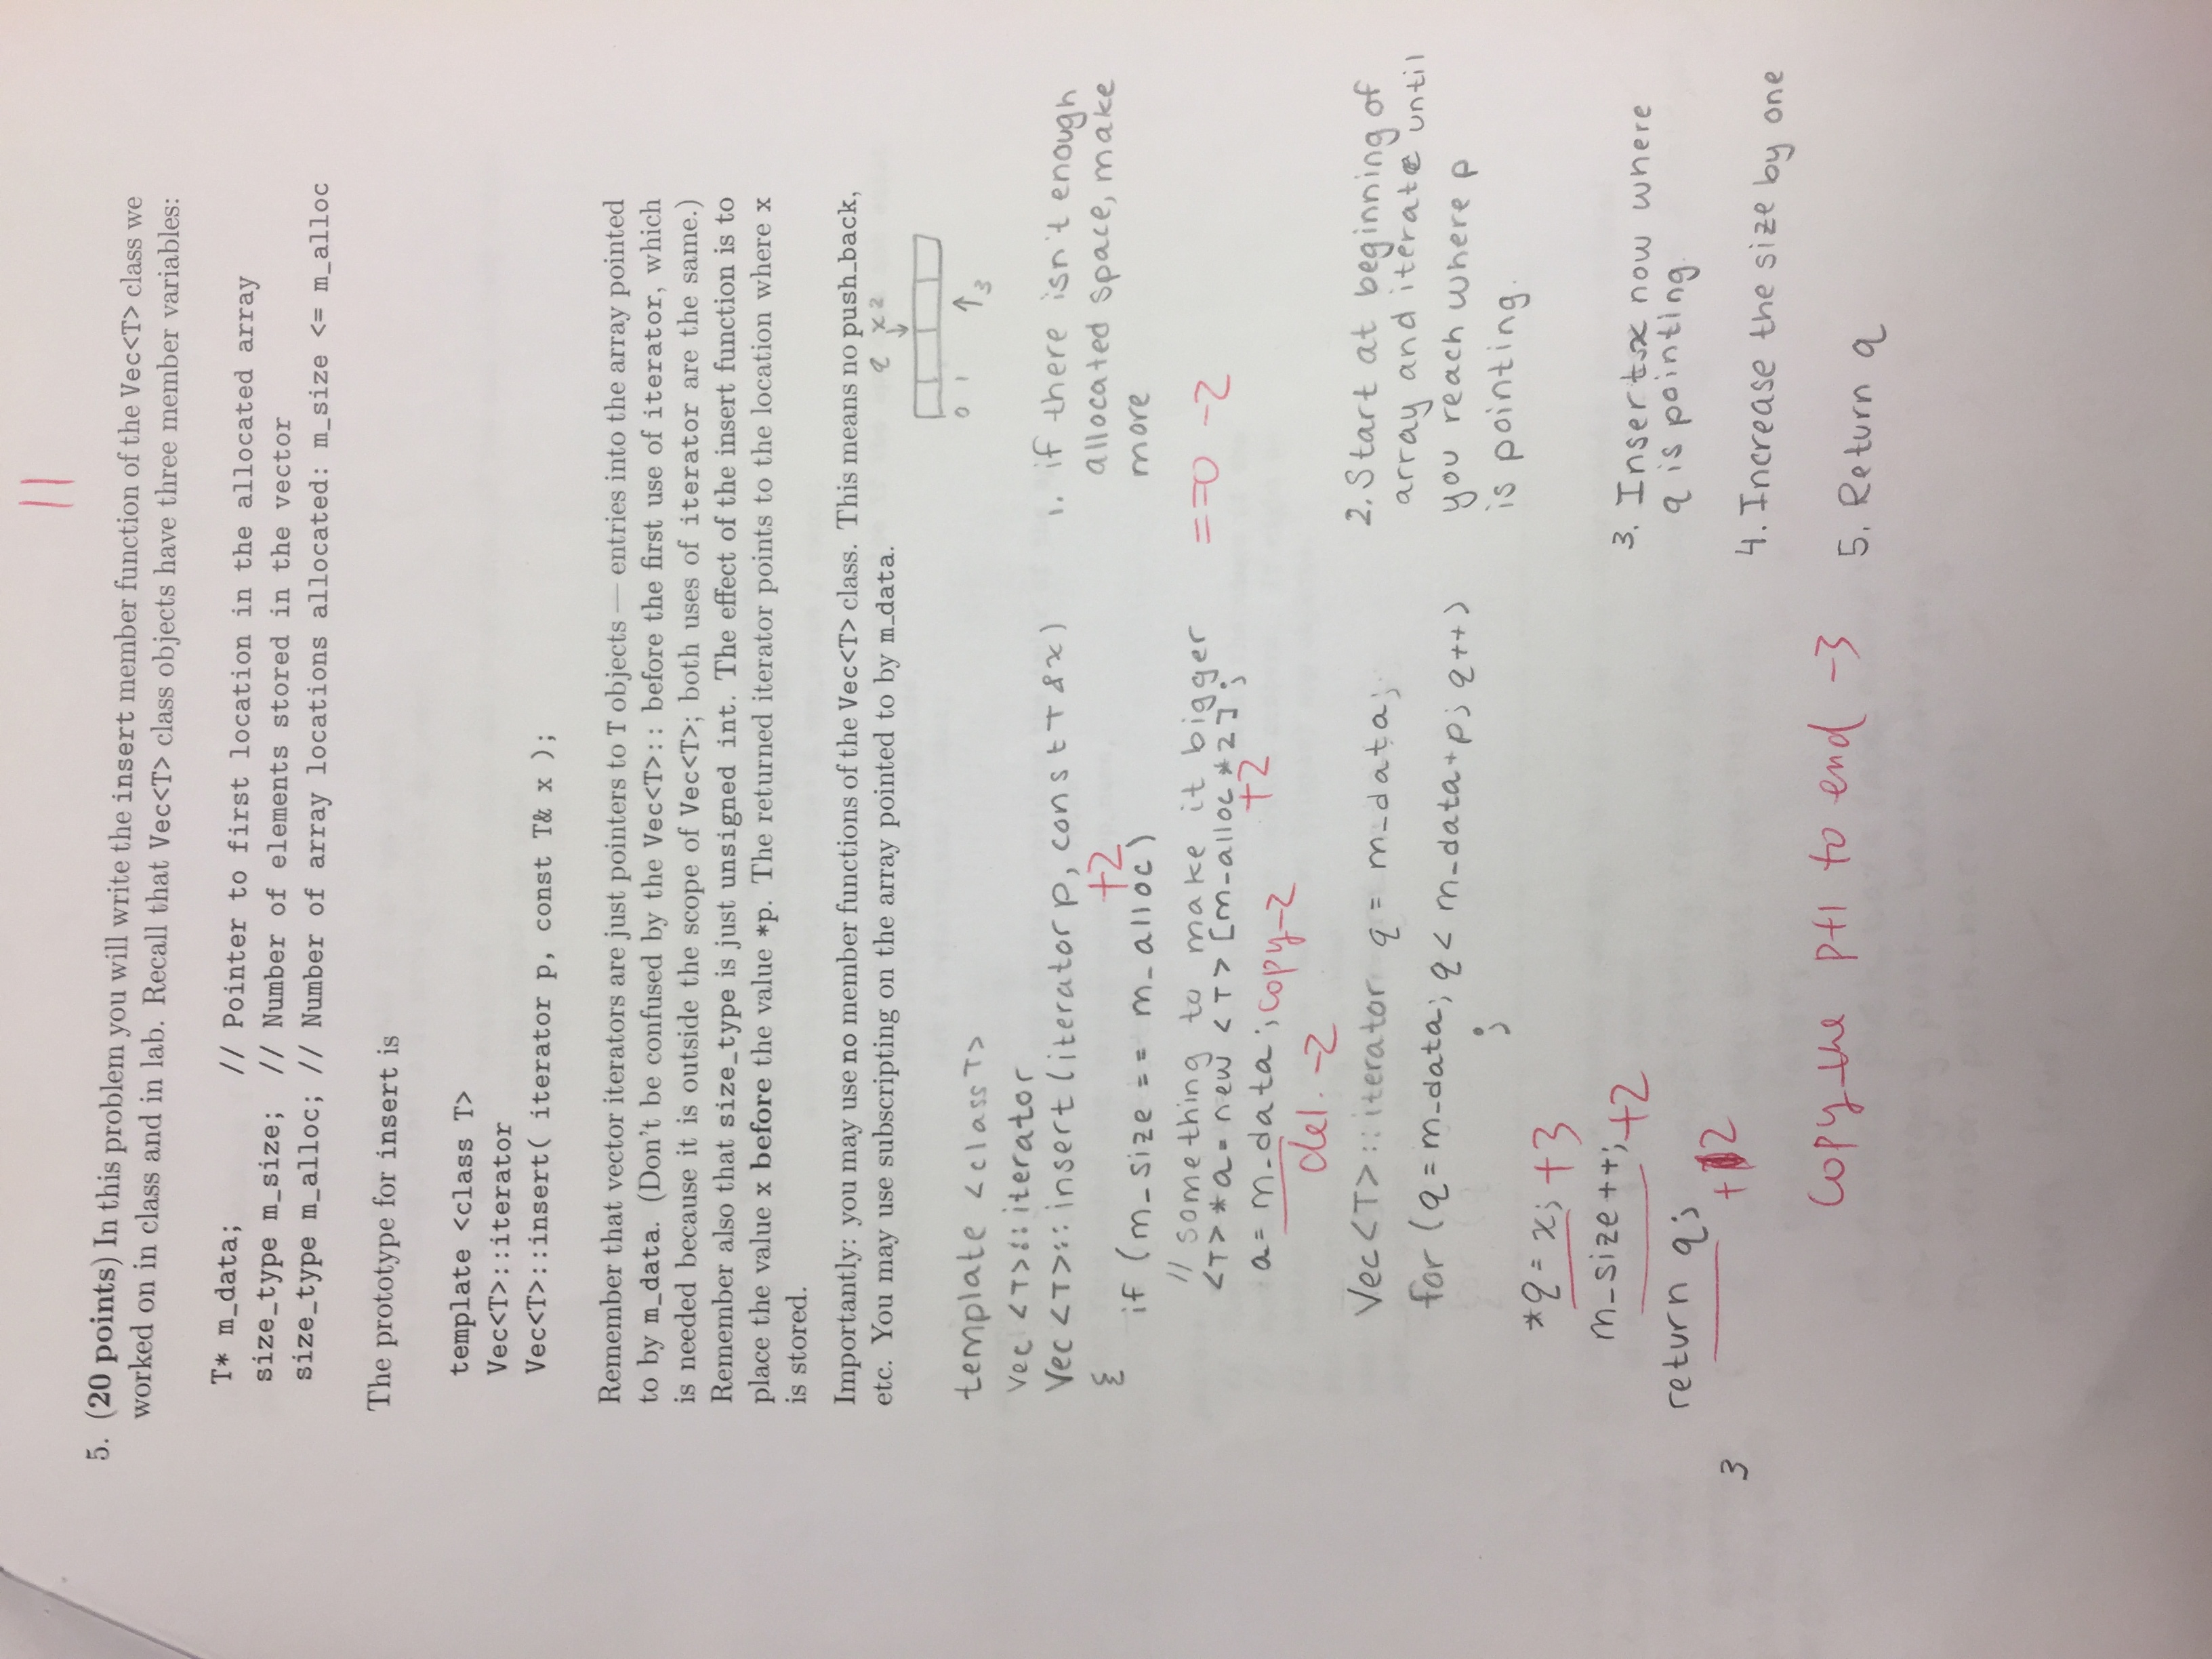 11
5. (20 points) In this problem you will write the insert member function of the Vec<T> class we
worked on in class and in lab. Recall that Vec<T> class objects have three member variables:
T* m_data; // Pointer to first location in the allocated array
size_type m_size; // Number of elements stored in the vector
size_type m_alloc; // Number of array locations allocated: m_size <= m_alloc
The prototype for insert is
template <class T>
Vec<T>::iterator
Vec<T>::insert( iterator p, const T& x );
Remember that vector iterators are just pointers to T objects — entries into the array pointed
to by m_data. (Don't be confused by the Vec<T>:: before the first use of iterator, which
is needed because it is outside the scope of Vec<T>; both uses of iterator are the same.)
Remember also that size_type is just unsigned int. The effect of the insert function is to
place the value x before the value *p. The returned iterator points to the location where x
is stored.
Importantly: you may use no member functions of the Vec<T> class. This means no push_back,
etc. You may use subscripting on the array pointed to by m_data.
q x 2
0 1 3
template <class T>
Vec <T>:: iterator
Vec <T>:: insert (iterator p, const T &x)
1. if there isn't enough
allocated space, make
more
{ +2
if (m_size == m_alloc)
// something to make it bigger
==0 -2
<T> *a = new <T> [m_alloc *2];
+2
a = m_data; copy -2
del. -2
Vec<T>:: iterator q = m_data;
for (q = m_data; q < m_data + p; q++)
;
2. Start at beginning of
array and iterate until
you reach where p
is pointing.
*q = x; +3
m_size ++; +2
3. Insert x now where
q is pointing.
return q;
+2
3
4. Increase the size by one
copy the p+1 to end -3
5. Return q